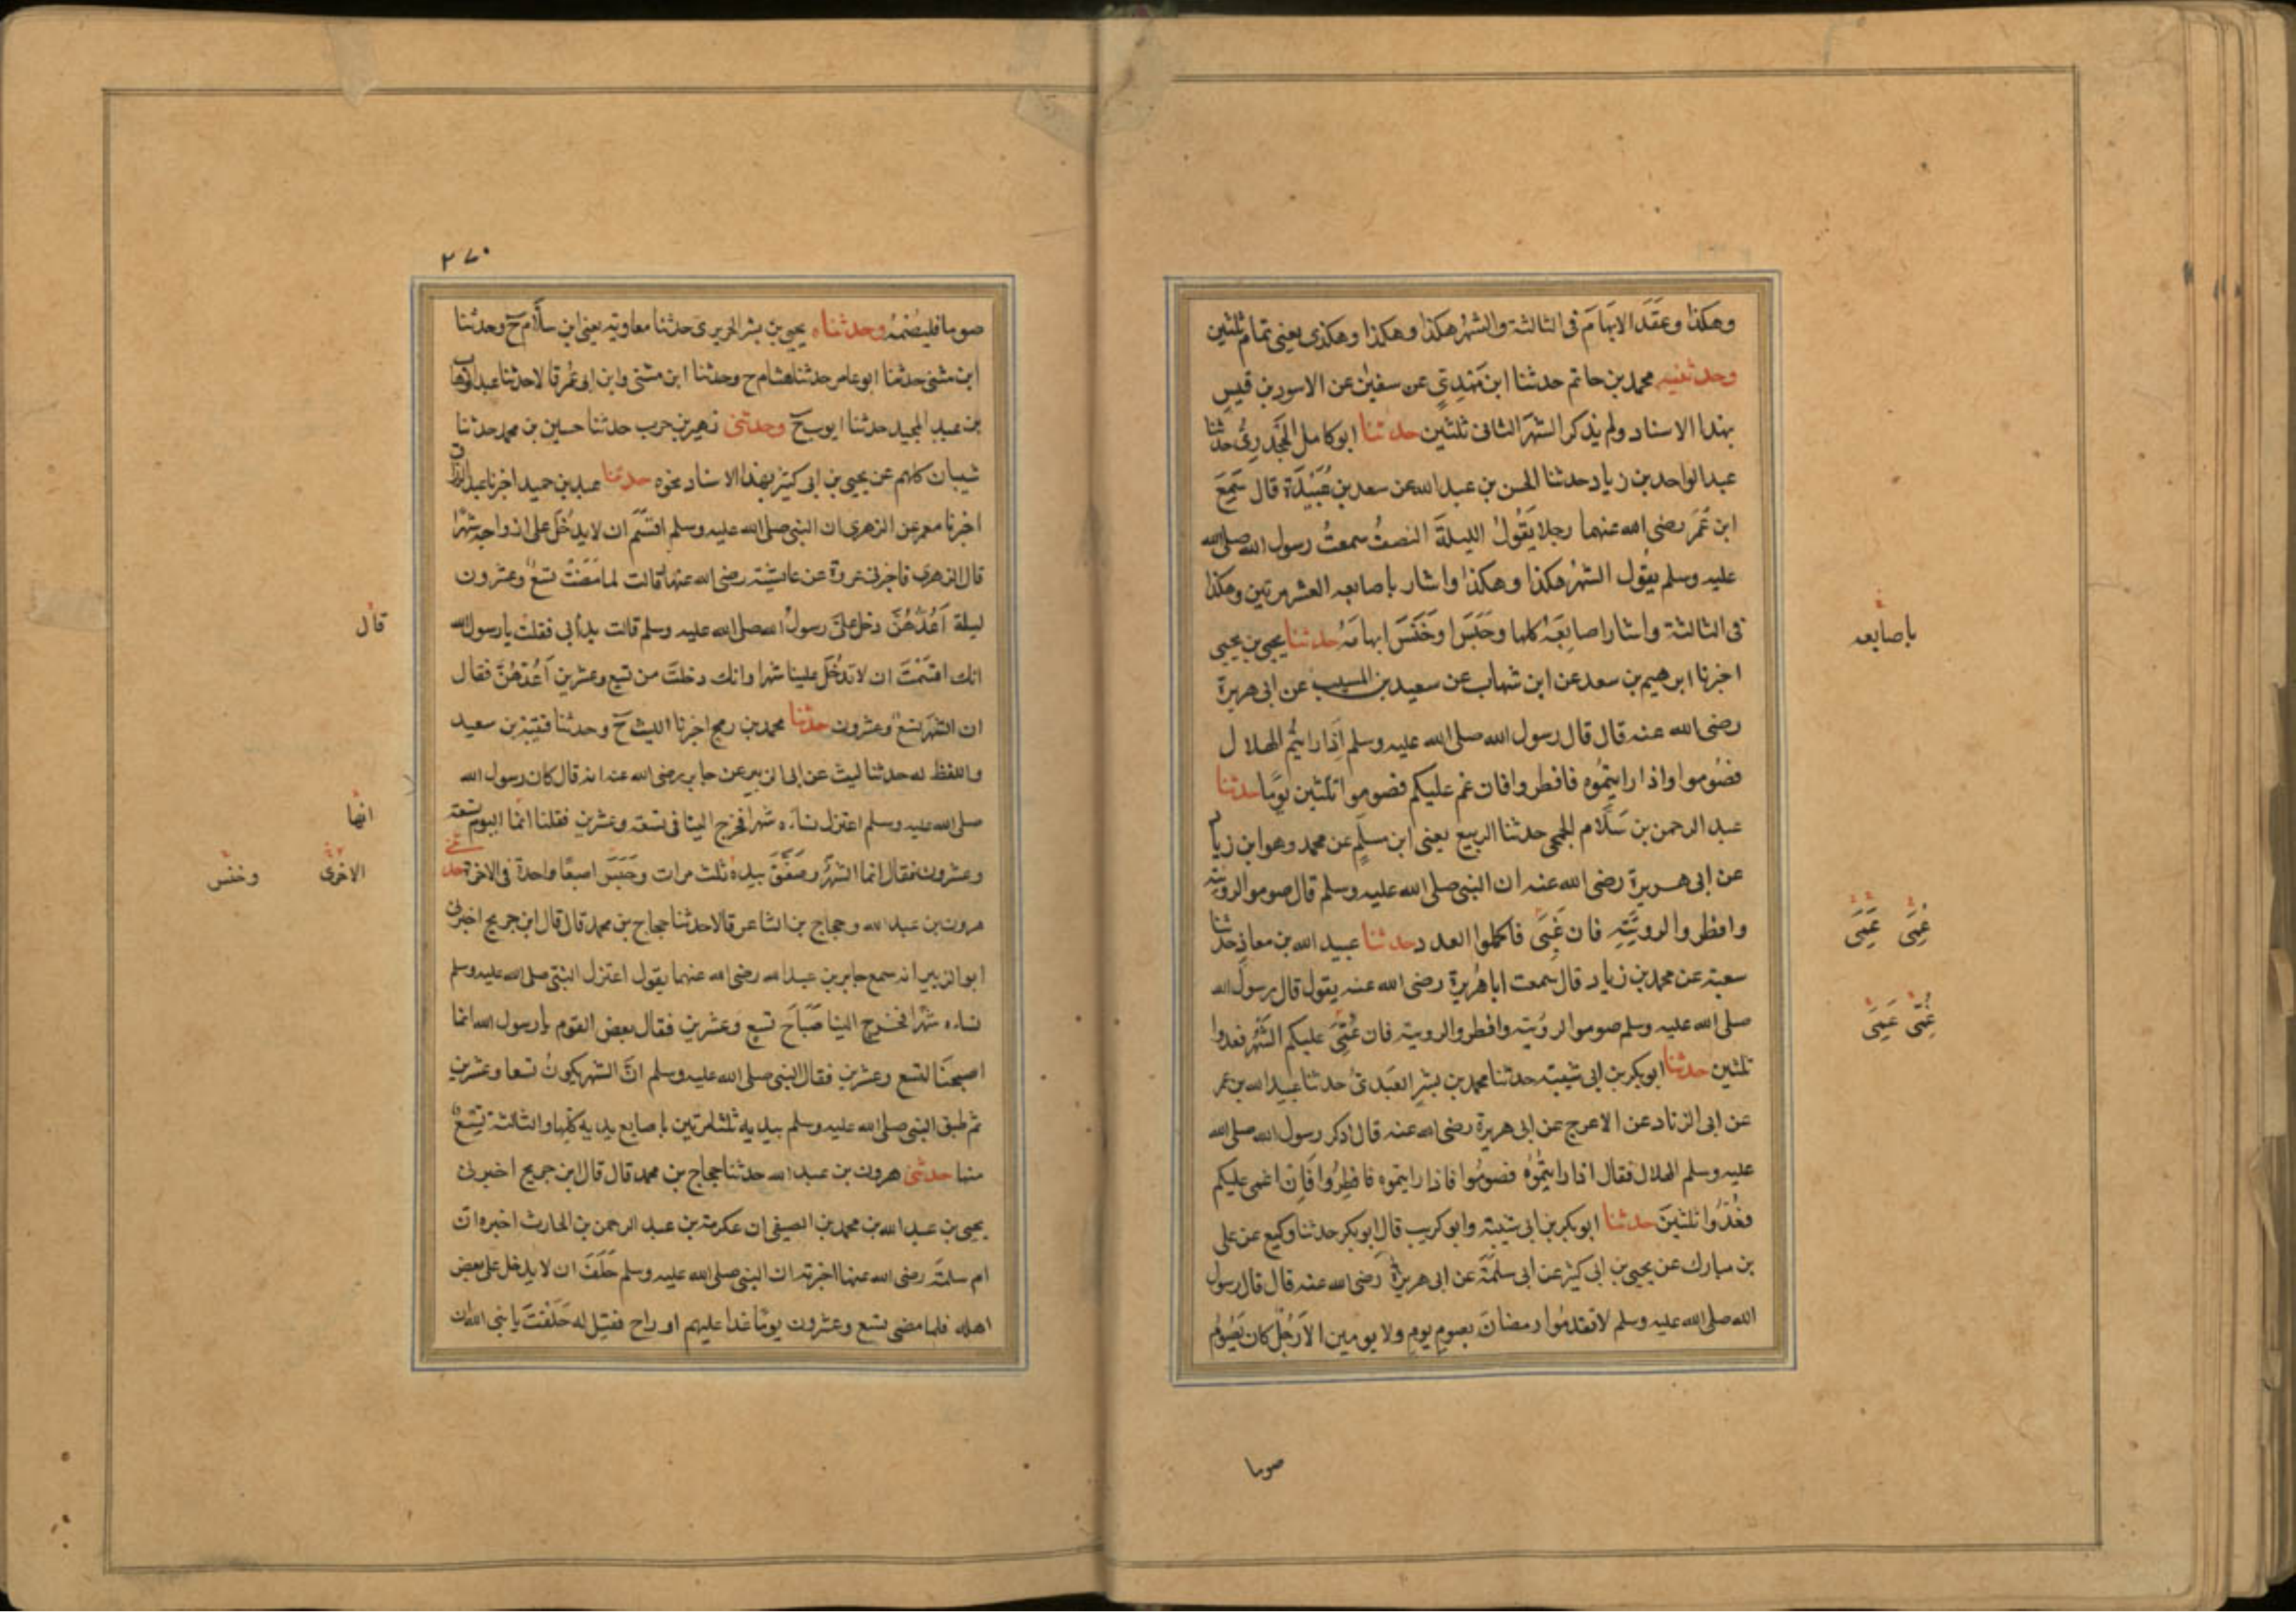 وهكذا وعَقَدَ الابهَامَ فى الثالثة والشهرُ هكذا وهكذا وهكذى يعنى تمام ثلثين
وحدثنيه محمد بن حاتم حدثنا ابن مَهْدِيٍّ عن سفيٰن عن الاسود بن قيسٍ
بهذا الاسناد ولم يذكر الشهرَ الثانى ثلثين حدثنا ابو كامل الجَحْدَرِىُّ حدثنا
عبد الواحد بن زياد حدثنا الحسن بن عبد الله عن سعد بن عُبَيْدَةَ قال سَمِعَ
ابن عُمَرَ رضى الله عنهما رجلا يَقُولُ الليلةَ النصفُ سمعتُ رسول الله صلى الله
عليه وسلم يقُول الشهرُ هكذا وهكذا واشار باصابعه العشر مرتين وهكذا
فى الثالثة واشار اصابِعَهُ كلها وحَبَسَ اوخَنَسَ ابهامَهُ حدثنا يحيى بن يحيى
اخبرنا ابرهيم بن سعد عن ابن شهاب عن سعيد بن المسيب عن ابى هريرة
رضى الله عنه قال قال رسول الله صلى الله عليه وسلم اِذا رايتُم الهلال
فصُوموا واذا رايتمُوه فافطروا فان غم عليكم فصوموا ثلثين يومًا حدثنا
عبد الرحمن بن سَلَّام الجمحى حدثنا الربيع يعنى ابن مسلمٍ عن محمد وهو ابن زياد
عن ابى هريرة رضى الله عنه ان النبى صلى الله عليه وسلم قال صوموا لرويته
وافطروا لرويَتِهِ فان غَبِىَ فاكملوا العدد حدثنا عبيد الله بن معاذ حدثنا
سعبة عن محمد بن زياد قال سمعت ابا هُرَيرةَ رضى الله عنه يقول قال رسول الله
صلى الله عليه وسلم صوموا لرؤيته وافطروا لرويته فان غُمِّىَ عليكم الشهْرُ فعدوا
ثلثين حدثنا ابو بكر بن ابى شيبة حدثنا محمد بن بِشرٍ العَبْدىُّ حدثنا عبيد الله بن عمر
عن ابى الزناد عن الاعرج عن ابى هريرة رضى الله عنه قال ذكر رسول الله صلى الله
عليه وسلم الهلال فقال اذا رايتمُوْهُ فصومُوا فاذا رايتموه فافطِرُوا فَاِن اغمى عليكم
فعُدُّوا ثلثينَ حدثنا ابو بكر بن ابى شيبة وابو كريب قال ابو بكر حدثنا وكيع عن على
بن مبارك عن يحيى بن ابى كثير عن ابى سلمَةَ عن ابى هريرة رضى الله عنه قال قال رسول
الله صلى الله عليه وسلم لا تقدمُوا رمضانَ بصومِ يومٍ ولا يومين الا رَجُلٌ كان يَصُومُ
صوما
باصابعه
غُمِىَ غَمِىَ
غُبِّىَ غَمِىَ
٢٧٠
صوما فليَصُمْهُ وحدثناه يحيى بن بشر الحريرى حدثنا معاوية يعنى ابن سلّام ح وحدثنا
ابن مثنى حدثنا ابو عامر حدثنا هشام ح وحدثنا ابن مثنى وابن ابى عُمر قالا حدثنا عبد الوهاب
بن عبد المجيد حدثنا ايوب ح وحدثنى زهير بن حرب حدثنا حسين بن محمد حدثنا
شيبان كلهم عن يحيى بن ابى كثير بهذا الاسناد نحوه حدثنا عبد بن حميد اخبرنا عبد الرزاق
اخبرنا معمر عن الزهرى ان النبى صلى الله عليه وسلم اقسَمَ ان لا يدخُلَ على ازواجه شهْرًا
قال الزهرى فاخبرنى عروة عن عايشة رضى الله عنها قالت لما مَضَتْ تسعٌ وعشرون
ليلة اَعُدُّهُنَّ دخل علىَّ رسولُ الله صلى الله عليه وسلم قالت بدأ بى فقلت يا رسول الله
انك اقسَمْتَ ان لا تدخُلَ علينا شهرا وانك دخلت من تسع وعشرين اَعُدُّهُنَّ فقال
ان الشهرَ تسعٌ وعشرون حدثنا محمد بن رمح اخبرنا الليث ح وحدثنا قتيبة بن سعيد
واللفظ له حدثنا ليث عن ابى الزبير عن جابر رضى الله عنه انه قال كان رسول الله
صلى الله عليه وسلم اعتزل نساءه شهرا فخرج الينا فى تسعة وعشرين فقلنا انما اليوم تسعة
وعشرون فقال انما الشهرُ وصَفَّقَ بيده ثلث مرات وحَبَسَ اصبعًا واحدة فى الاخرة حدثنى
هرون بن عبد الله وحجاج بن الشاعر قالا حدثنا حجاج بن محمد قال قال ابن جريج اخبرنى
ابو الزبير انه سمع جابر بن عبد الله رضى الله عنهما يقول اعتزل النبى صلى الله عليه وسلم
نساءه شهْرًا فخرج الينا صَبَاحَ تسعٍ وعشرين فقال بعض القوم يا رسول الله انما
اصبحنَا لتسع وعشرين فقال النبى صلى الله عليه وسلم انَّ الشهر يكونُ تسعا وعشرين
ثم طبق النبى صلى الله عليه وسلم بيديه ثلثا مرتين باصابع يديه كلها والثالثة بتسعٍ
منها حدثنى هرون بن عبد الله حدثنا حجاج بن محمد قال قال ابن جريج اخبرنى
يحيى بن عبد الله بن محمد بن الصيفى ان عكرمة بن عبد الرحمن بن الحارث اخبره ان
ام سلمة رضى الله عنها اخبرته ان النبى صلى الله عليه وسلم حَلَفَ ان لا يدخل على بعض
اهله فلما مضى تسع وعشرون يومًا غدا عليهم او راح فقيل له حَلَفْتَ يا نبى الله ان
قال
انها
الاخرى
وخنس